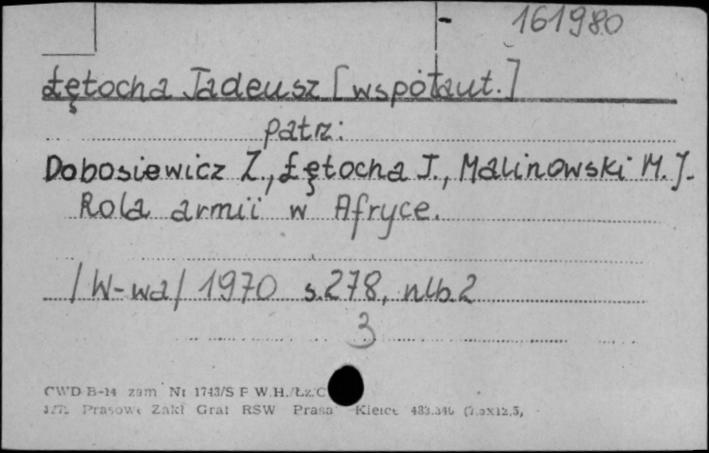 161980
Łętocha Tadeusz [współaut.]
patrz:
Dobosiewicz Z., Łętocha T., Malinowski M. J.
Rola armii w Afryce.
/W-wa/ 1970 s.278, nlb.2
3
CWD B-14 zam Nr 1743/S P W.H./Łz.C
Prasowe Zakł Graf RSW Prasa Kielce